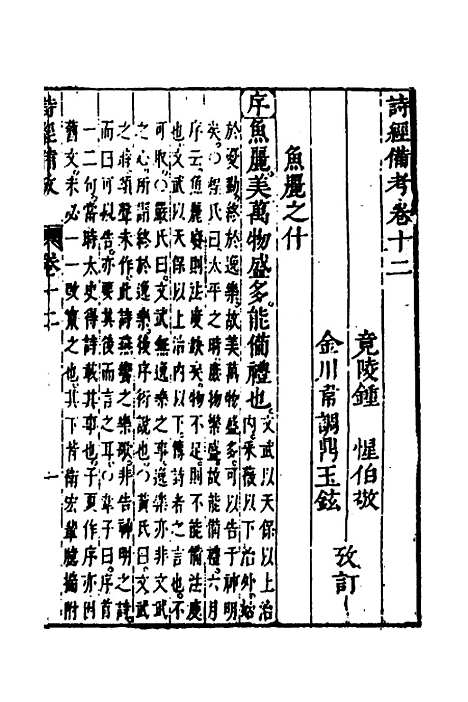 詩經備考卷十二
竟陵鍾　惺伯敬
金川韋調鼎玉鉉
攷訂
魚麗之什
序魚麗美萬物盛多能備禮也文武以天保以上治
內采薇以下治外始
於憂勤終於逸樂故美萬物盛多可以告于神明
矣○程氏曰太平之時庶物樂盛故能備禮六月
序云魚麗廢則法度缺矣物不足則不能備法度
也文武以天保以上治內以下傳詩者之言也不
可取○嚴氏曰文武無逸樂之事逸樂亦非文武
之心所謂終於逸樂後序衍說也○黃氏曰文武
之時頌聲未作此詩燕饗之樂歌非告神明之詩
而曰可以告亦要其後而言之耳○韋子曰序首
一二句當時太史得詩載其事也子夏作序亦因
舊文未必一一攷實之也其下皆衛宏輩臆摘附
詩經備攷
卷十二
一